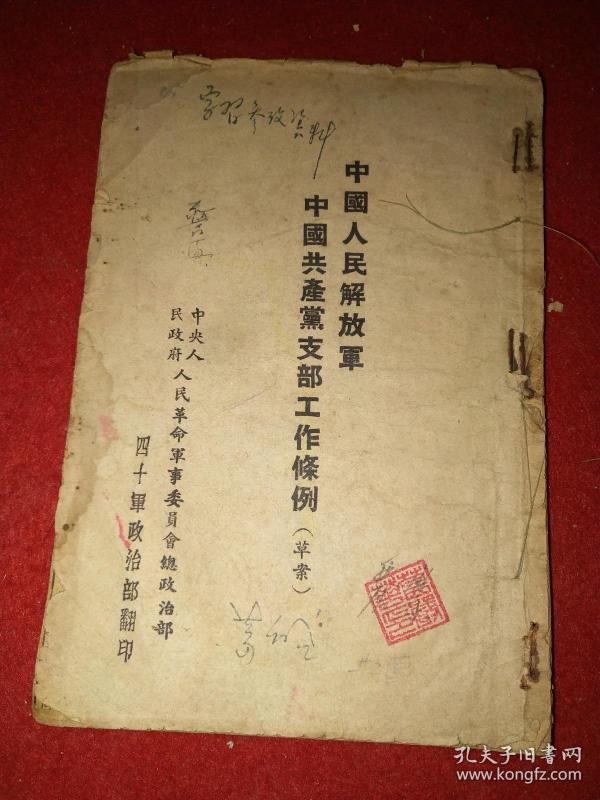 学习参考资料
中國人民解放軍
中國共產黨支部工作條例（草案）
中央人民政府人民革命軍事委員會總政治部
四十軍政治部翻印
孔夫子旧书网
www.kongfz.com